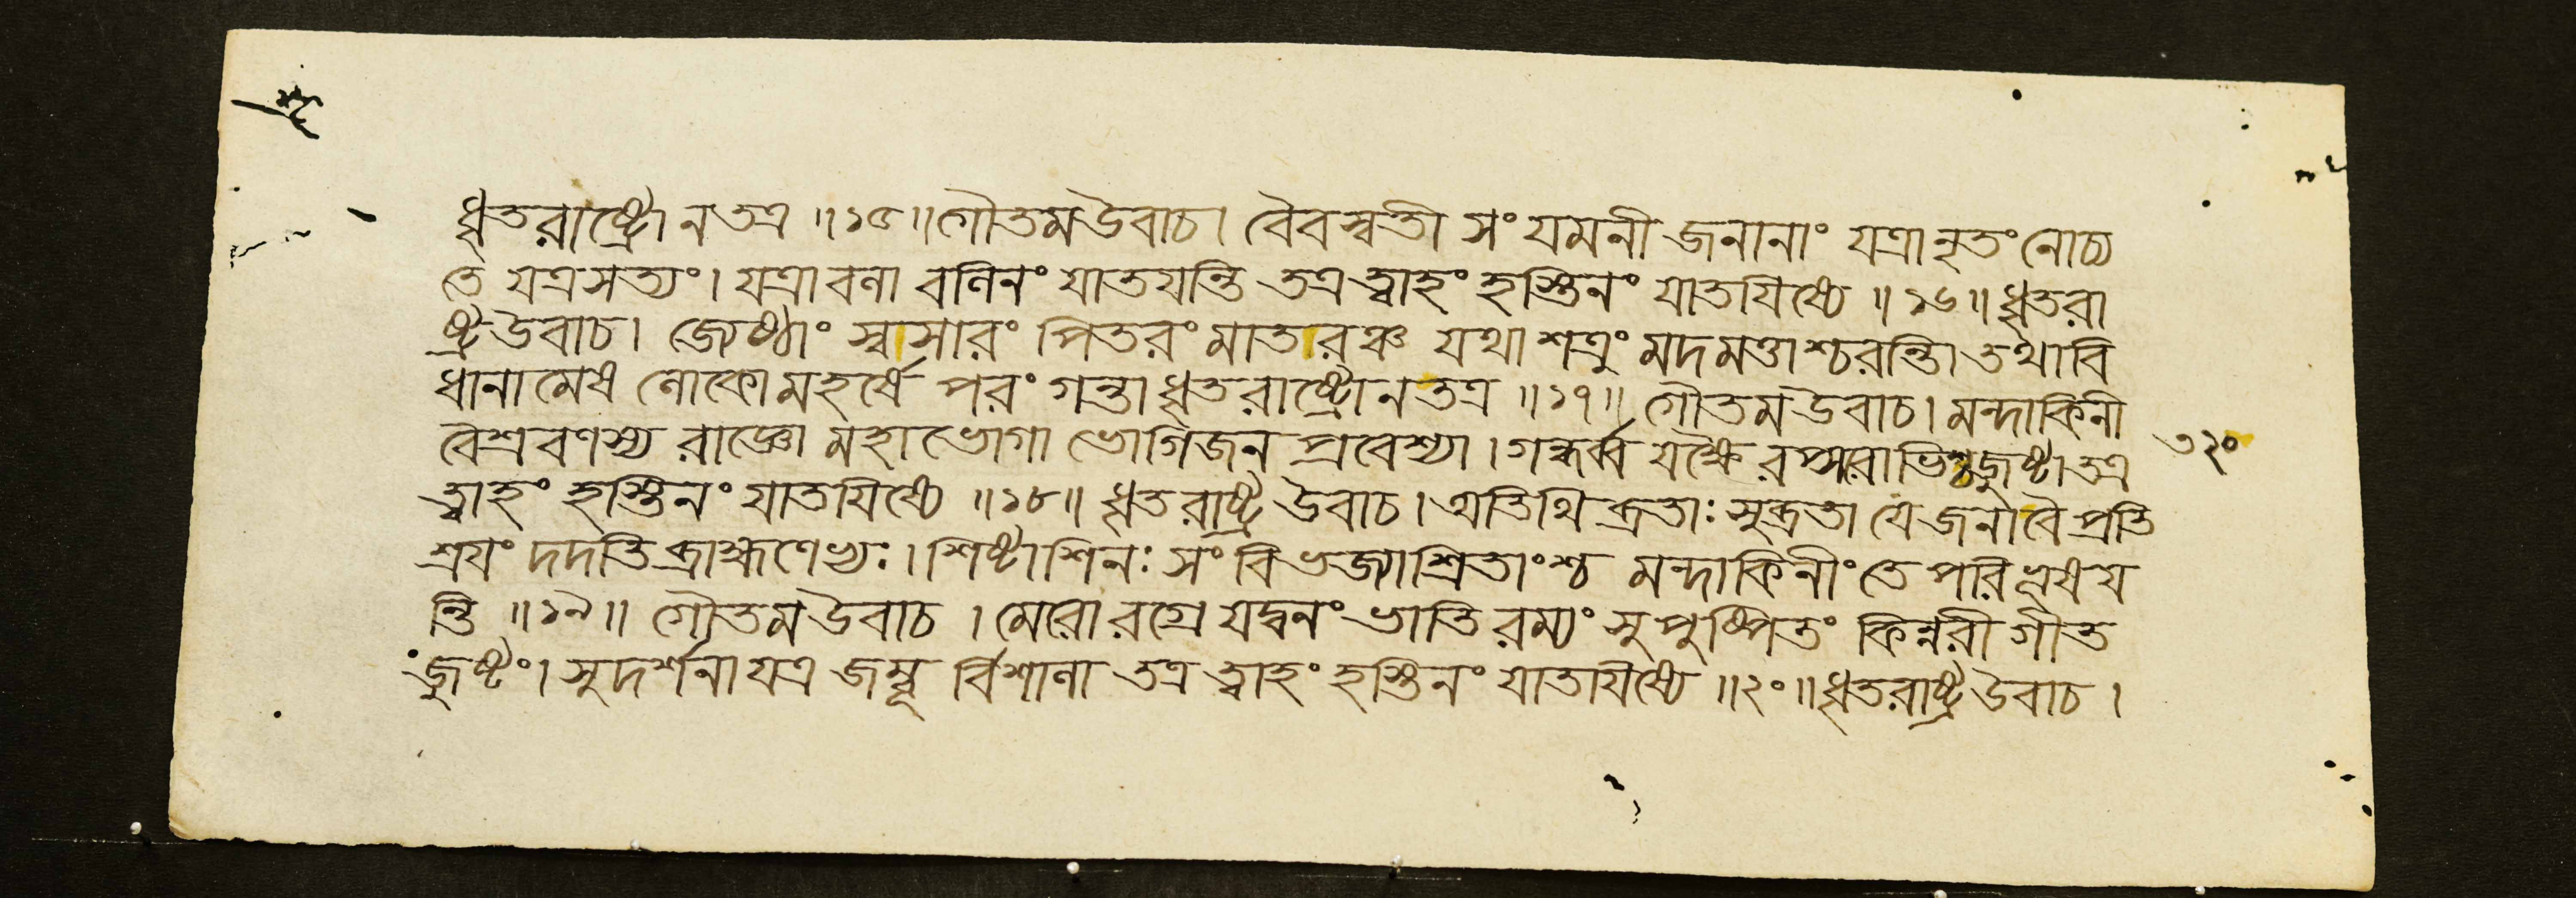 ধৃতরাষ্ট্রোনতত্র॥১৫॥গৌতমউবাচ। বৈবস্বতী সংযমনী জনানাং যত্রানৃতংনোচ্য
তে যত্রসত্যং। যত্রাবলা বলিনং যাতযন্তি তত্রত্বাহং হস্তিনং যাতযিষ্যে॥১৬॥ধৃতরা
ষ্ট্রউবাচ। জ্যেষ্ঠাং স্বাসারং পিতরং মাতারঞ্চ যথাশত্রুং মদমত্তাশ্চরন্তি। তথাবি
ধানামেষ লোকোমহর্ষে পরংগন্তাধৃতরাষ্ট্রোনতত্র॥১৭॥ গৌতমউবাচ। মন্দাকিনী
বৈশ্রবণস্য রাজ্ঞো মহাভোগা ভোগিজন প্রবেশ্যা। গন্ধর্ব্ব যক্ষৈ রপ্সরাভিশ্চজুষ্টাতত্র
ত্বাহং হস্তিনং যাতযিষ্যে॥১৮॥ ধৃতরাষ্ট্র উবাচ।অতিথিব্রতাঃসুব্রতা যেজনাবৈপ্রতি
শ্রযং দদতিব্রাহ্মণেভ্যঃ। শিষ্টাশিনঃ সংবিভজ্যাশ্রিতাংশ্চ মন্দাকিনীংতেপরিভূষয
ন্তি॥১৯॥ গৌতমউবাচ। মেরোরগ্রে যদ্বনং ভাতিরম্যং সুপুষ্পিতং কিন্নরীগীত
জুষ্টং। সুদর্শনাযত্র জম্বূ র্বিশালা তত্রত্বাহং হস্তিনং যাতাযিষ্যে॥২০॥ধৃতরাষ্ট্রউবাচ।
৩২০